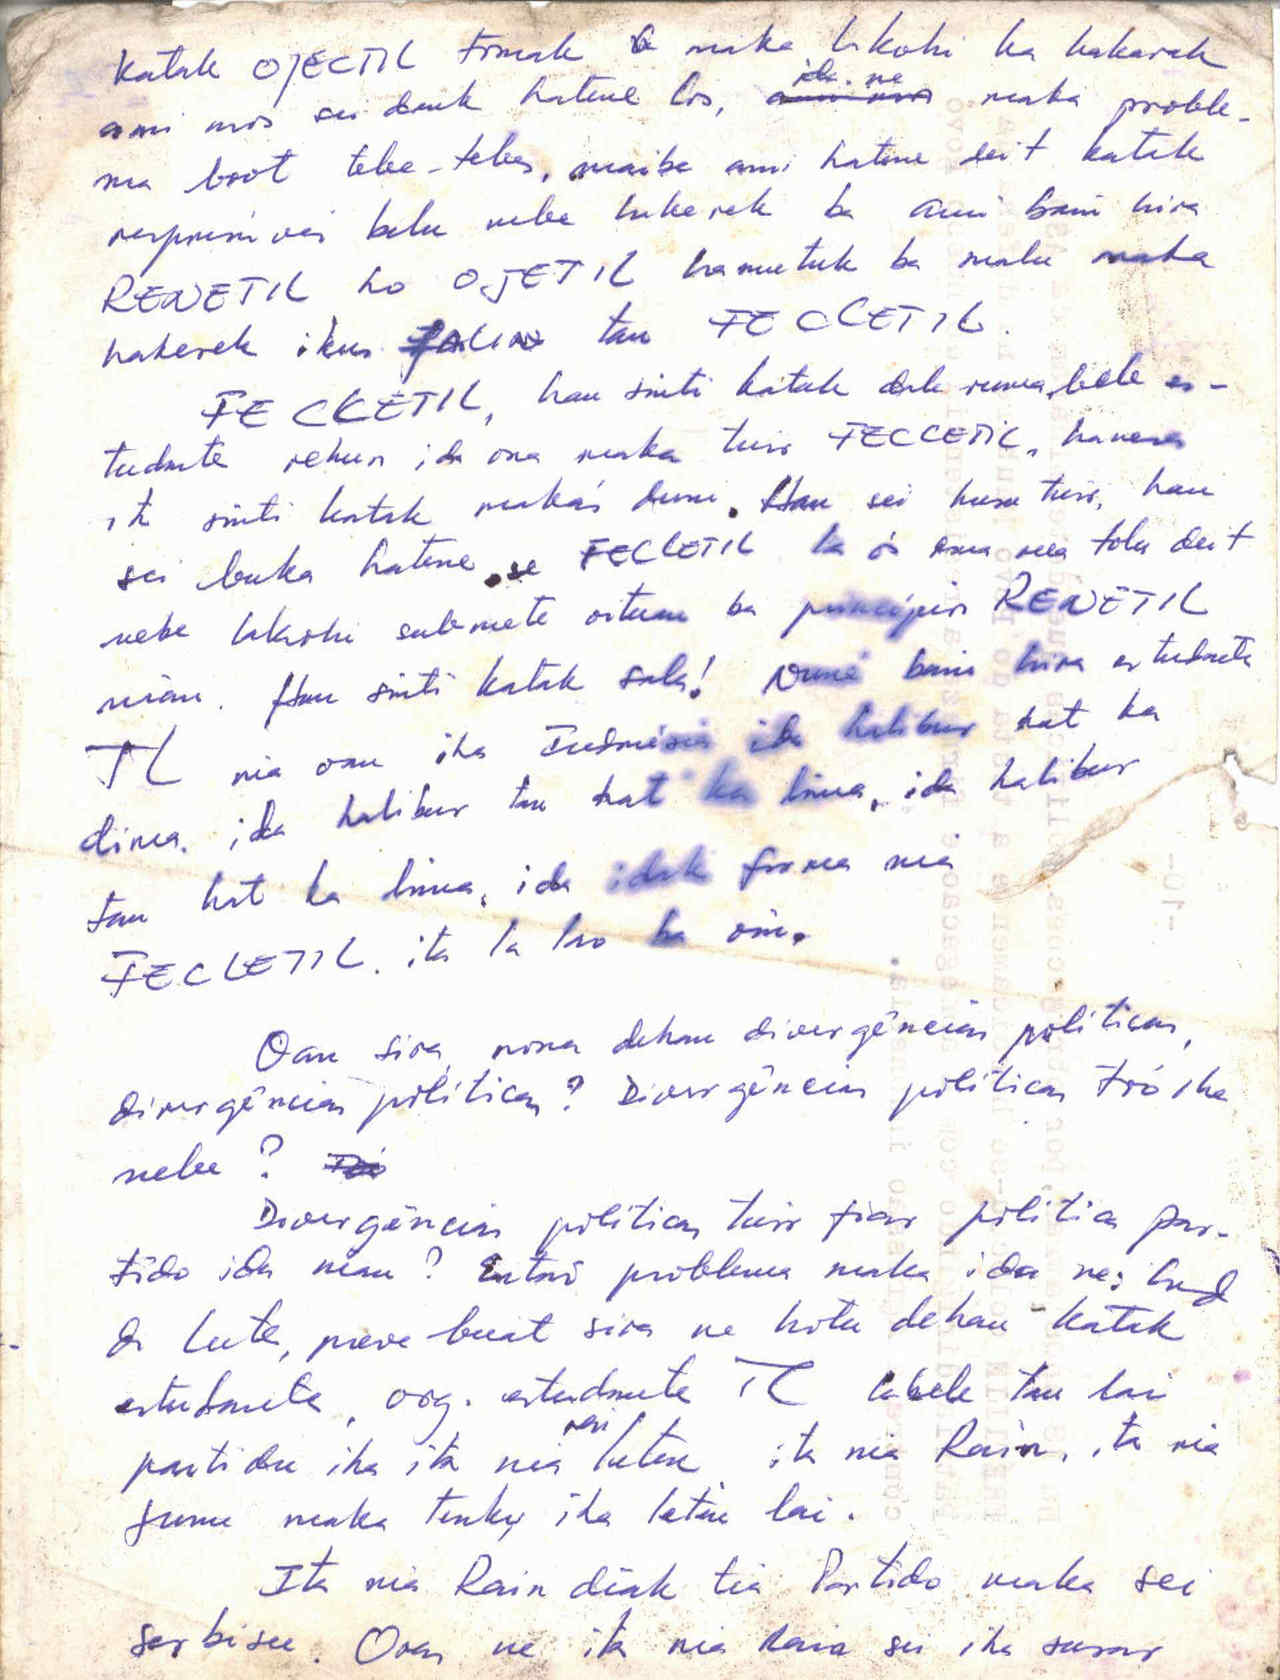 katak OJECTIL tomak maka lakohi ka hakarak
ami mos sei dauk hatene los, ida ne maka proble-
ma boot tebe-tebes, maibe ami hatene deit katak
responsáveis balu nebe hakerek ba ami bain hira
RENETIL ho OJETIL hamutuk ba malu maka
hakerek ikus tau FECLETIL.
FECLETIL, hau sinti katak dala ruma, bele es-
tudante rihun ida ona maka tuir FECLETIL, hanesan
ita sinti katak makás duni. Hau sei husu tuir, hau
sei buka hatene, se FECLETIL ka ós ema rua tolu deit
nebe lakohi submete ostum ba principios RENETIL
nian. Hau sinti katak sala! Nune bain hira estudante
TL nia oan iha Indonésia ida halibur hat ka
lima, ida halibur tau hat ka lima, ida halibur
tau hat ka lima, ida idak forma nia
FECLETIL, ita la lao ba oin.
Oan sira, nona dehan divergências políticas,
divergências políticas? Divergências políticas tó iha
nebe?
Divergências políticas tuir fiar política par-
tido ida nian? Entaó problema maka ida ne:
de lute, prove buat sira ne hotu dehan katak
estudante, org. estudante TL labele tau lai
partidu iha ita nia leten, ita nia Rain, ita nia
funu maka tenky iha leten lai.
Ita nia Rain diak tia Partido maka sei
serbisu. Oras ne ita nia Rain sei iha susar